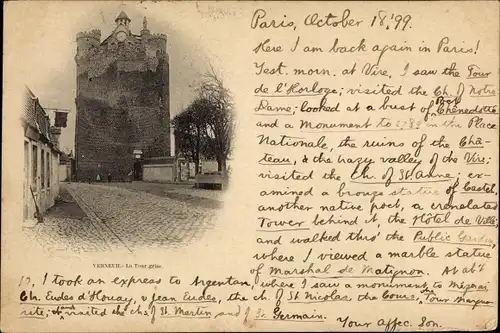 Paris, October 18, '99.
Here I am back again in Paris!
Yest. morn. at Vire, I saw the Tour
de l'Horloge; visited the Ch. of Notre
Dame; looked at a bust of Poet Chênedollé
and a Monument to 1789 in the Place
Nationale, the ruins of the Châ-
teau, & the hazy valley of the Vire;
visited the Ch. of St. Anne; ex-
amined a bronze statue of Castel,
another native poet, a crenelated
Tower behind it, the Hôtel de Ville;
and walked thro' the Public Garden,
where I viewed a marble statue
of Marshal de Matignon. At abt
VERNEUIL - La Tour grise.
10, I took an express to Argentan, where I saw a monument to Mézerai
Ch. Eudes d'Houay, & Jean Eudes, the ch. of St. Nicolas, the Cours, Tour Margue-
rite; & visited the chs. of St. Martin and of St. Germain.
Your affec. Son.